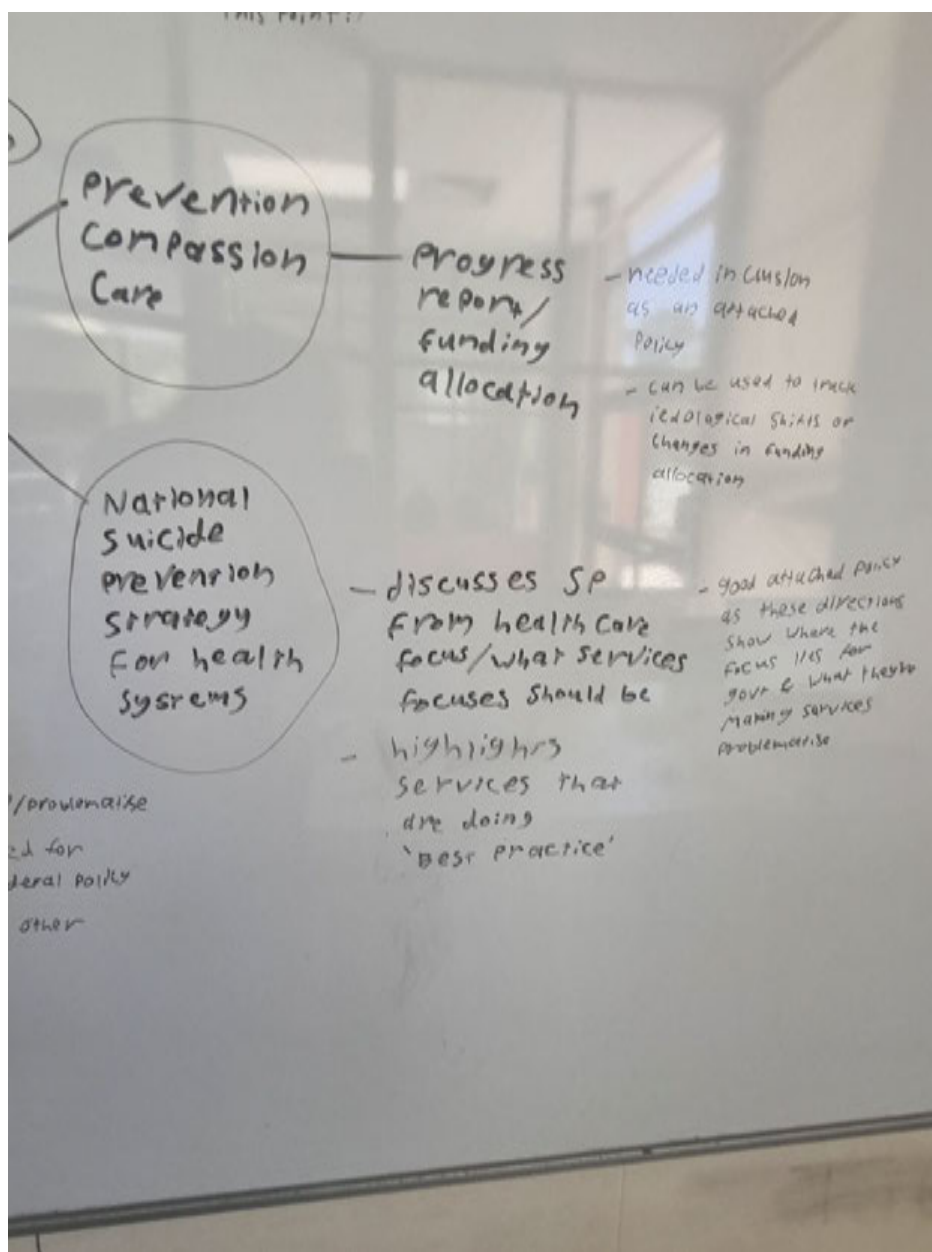 THIS POINT:
Prevention
Compassion
Care
Progress
report/
funding
allocation
- needed inclusion
as an attached
Policy
- can be used to track
iedological shifts or
changes in funding
allocation
National
Suicide
prevention
strategy
for health
systems
- discusses SP
from healthcare
focus/what services
focuses should be
- highlights
services that
are doing
'Best Practice'
- good attached policy
as these directions
show where the
focus lies for
govt & what they're
making services
problematise
/problemaise
ed for
deral policy
other